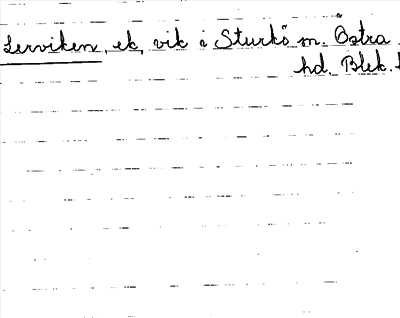 Lerviken, ek, vik i Sturkö sn. Östra
hd. Blek.